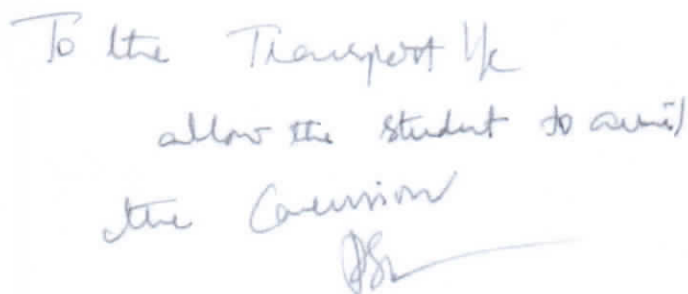 To the Transport I/c
allow the student to avail
the Concession